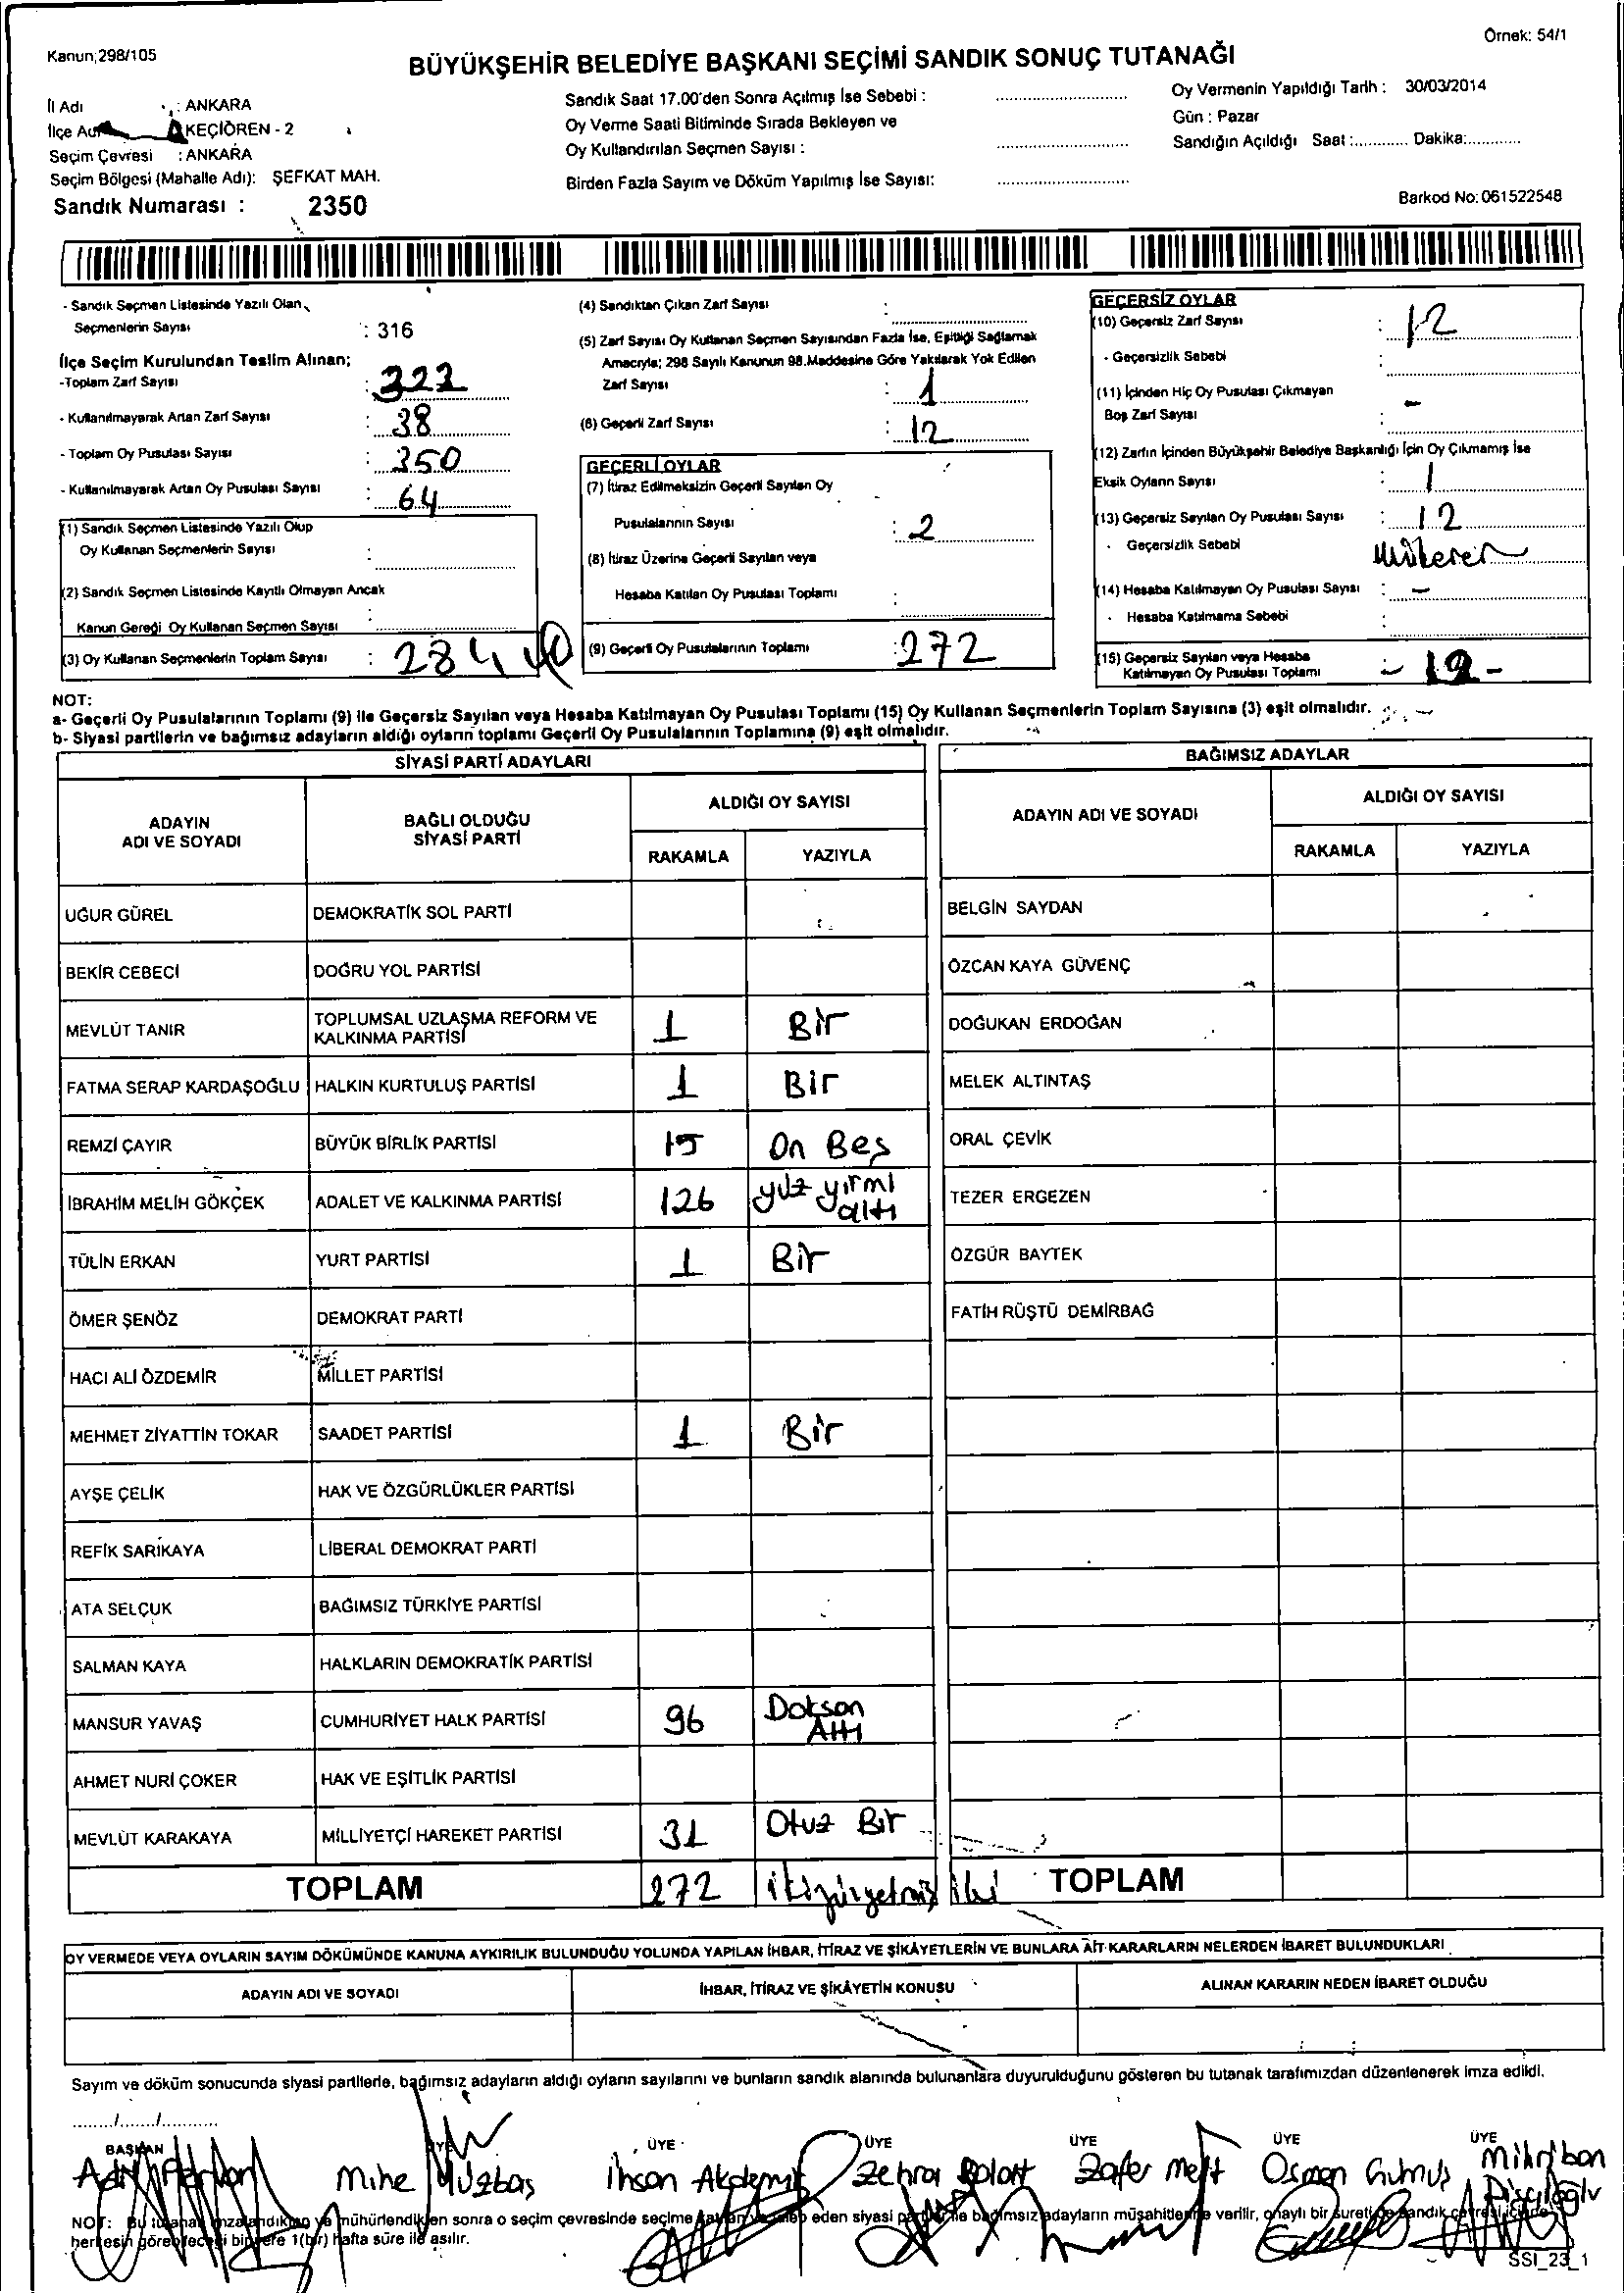 Kanun;298/105
Örnek: 54/1
BÜYÜKŞEHİR BELEDİYE BAŞKANI SEÇİMİ SANDIK SONUÇ TUTANAĞI
İl Adı : ANKARA
İlçe Adı KEÇİÖREN - 2
Seçim Çevresi : ANKARA
Seçim Bölgesi (Mahalle Adı): ŞEFKAT MAH.
Sandık Numarası : 2350
Sandık Saat 17.00'den Sonra Açılmış İse Sebebi :
Oy Verme Saati Bitiminde Sırada Bekleyen ve
Oy Kullandırılan Seçmen Sayısı :
Birden Fazla Sayım ve Döküm Yapılmış İse Sayısı:
Oy Vermenin Yapıldığı Tarih : 30/03/2014
Gün : Pazar
Sandığın Açıldığı Saat :............ Dakika:............
Barkod No: 061522548
- Sandık Seçmen Listesinde Yazılı Olan
Seçmenlerin Sayısı : 316
İlçe Seçim Kurulundan Teslim Alınan;
-Toplam Zarf Sayısı : 323
- Kullanılmayarak Artan Zarf Sayısı : 38
- Toplam Oy Pusulası Sayısı : 350
- Kullanılmayarak Artan Oy Pusulası Sayısı : 64
(1) Sandık Seçmen Listesinde Yazılı Olup
Oy Kullanan Seçmenlerin Sayısı :
(2) Sandık Seçmen Listesinde Kayıtlı Olmayan Ancak
Kanun Gereği Oy Kullanan Seçmen Sayısı :
(3) Oy Kullanan Seçmenlerin Toplam Sayısı : 284
(4) Sandıktan Çıkan Zarf Sayısı :
(5) Zarf Sayısı Oy Kullanan Seçmen Sayısından Fazla İse, Eşitliği Sağlamak
Amacıyla; 298 Sayılı Kanunun 98.Maddesine Göre Yakılarak Yok Edilen
Zarf Sayısı : 1
(6) Geçerli Zarf Sayısı : 12
GEÇERLİ OYLAR
(7) İtiraz Edilmeksizin Geçerli Sayılan Oy
Pusulalarının Sayısı : 2
(8) İtiraz Üzerine Geçerli Sayılan veya
Hesaba Katılan Oy Pusulası Toplamı :
(9) Geçerli Oy Pusulalarının Toplamı : 272
GEÇERSİZ OYLAR
(10) Geçersiz Zarf Sayısı : 12
- Geçersizlik Sebebi :
(11) İçinden Hiç Oy Pusulası Çıkmayan
Boş Zarf Sayısı : -
(12) Zarfın İçinden Büyükşehir Belediye Başkanlığı İçin Oy Çıkmamış İse
Eksik Oyların Sayısı : 1
(13) Geçersiz Sayılan Oy Pusulası Sayısı : 12
- Geçersizlik Sebebi Mükerer
(14) Hesaba Katılmayan Oy Pusulası Sayısı : -
- Hesaba Katılmama Sebebi :
(15) Geçersiz Sayılan veya Hesaba
Katılmayan Oy Pusulası Toplamı - 12 -
NOT:
a- Geçerli Oy Pusulalarının Toplamı (9) ile Geçersiz Sayılan veya Hesaba Katılmayan Oy Pusulası Toplamı (15) Oy Kullanan Seçmenlerin Toplam Sayısına (3) eşit olmalıdır.
b- Siyasi partilerin ve bağımsız adayların aldığı oyların toplamı Geçerli Oy Pusulalarının Toplamına (9) eşit olmalıdır.
SİYASİ PARTİ ADAYLARI
BAĞIMSIZ ADAYLAR
ADAYIN ADI VE SOYADI
BAĞLI OLDUĞU SİYASİ PARTİ
ALDIĞI OY SAYISI
RAKAMLA YAZIYLA
ADAYIN ADI VE SOYADI
ALDIĞI OY SAYISI
RAKAMLA YAZIYLA
UĞUR GÜREL DEMOKRATİK SOL PARTİ BELGİN SAYDAN
BEKİR CEBECİ DOĞRU YOL PARTİSİ ÖZCAN KAYA GÜVENÇ
MEVLÜT TANIR TOPLUMSAL UZLAŞMA REFORM VE KALKINMA PARTİSİ 1 Bir DOĞUKAN ERDOĞAN
FATMA SERAP KARDAŞOĞLU HALKIN KURTULUŞ PARTİSİ 1 Bir MELEK ALTINTAŞ
REMZİ ÇAYIR BÜYÜK BİRLİK PARTİSİ 15 On Beş ORAL ÇEVİK
İBRAHİM MELİH GÖKÇEK ADALET VE KALKINMA PARTİSİ 126 yüz yirmi altı TEZER ERGEZEN
TÜLİN ERKAN YURT PARTİSİ 1 Bir ÖZGÜR BAYTEK
ÖMER ŞENÖZ DEMOKRAT PARTİ FATİH RÜŞTÜ DEMİRBAĞ
HACI ALİ ÖZDEMİR MİLLET PARTİSİ
MEHMET ZİYATTİN TOKAR SAADET PARTİSİ 1 Bir
AYŞE ÇELİK HAK VE ÖZGÜRLÜKLER PARTİSİ
REFİK SARIKAYA LİBERAL DEMOKRAT PARTİ
ATA SELÇUK BAĞIMSIZ TÜRKİYE PARTİSİ
SALMAN KAYA HALKLARIN DEMOKRATİK PARTİSİ
MANSUR YAVAŞ CUMHURİYET HALK PARTİSİ 96 Doksan Altı
AHMET NURİ ÇOKER HAK VE EŞİTLİK PARTİSİ
MEVLÜT KARAKAYA MİLLİYETÇİ HAREKET PARTİSİ 31 Otuz Bir
TOPLAM 272 ikiyüzyetmiş iki TOPLAM
OY VERMEDE VEYA OYLARIN SAYIM DÖKÜMÜNDE KANUNA AYKIRILIK BULUNDUĞU YOLUNDA YAPILAN İHBAR, İTİRAZ VE ŞİKÂYETLERİN VE BUNLARA AİT KARARLARIN NELERDEN İBARET BULUNDUKLARI
ADAYIN ADI VE SOYADI İHBAR, İTİRAZ VE ŞİKÂYETİN KONUSU ALINAN KARARIN NEDEN İBARET OLDUĞU
Sayım ve döküm sonucunda siyasi partilerle, bağımsız adayların aldığı oyların sayılarını ve bunların sandık alanında bulunanlara duyurulduğunu gösteren bu tutanak tarafımızdan düzenlenerek imza edildi.
......../......../............
BAŞKAN ÜYE ÜYE ÜYE ÜYE ÜYE ÜYE
Mihe Yüzbaş İhsan Akdemir Zehra Polat Zafer Mert Osman Gümüş Mihriban Dişçiloğlu
NOT: Bu tutanak imzalandıktan ve mühürlendikten sonra o seçim çevresinde seçime katılan ve talep eden siyasi partiler ile bağımsız adayların müşahitlerine verilir, onaylı bir sureti de sandık çevresi içinde
herkesin görebileceği bir yere 1(bir) hafta süre ile asılır.
SSI_23_1